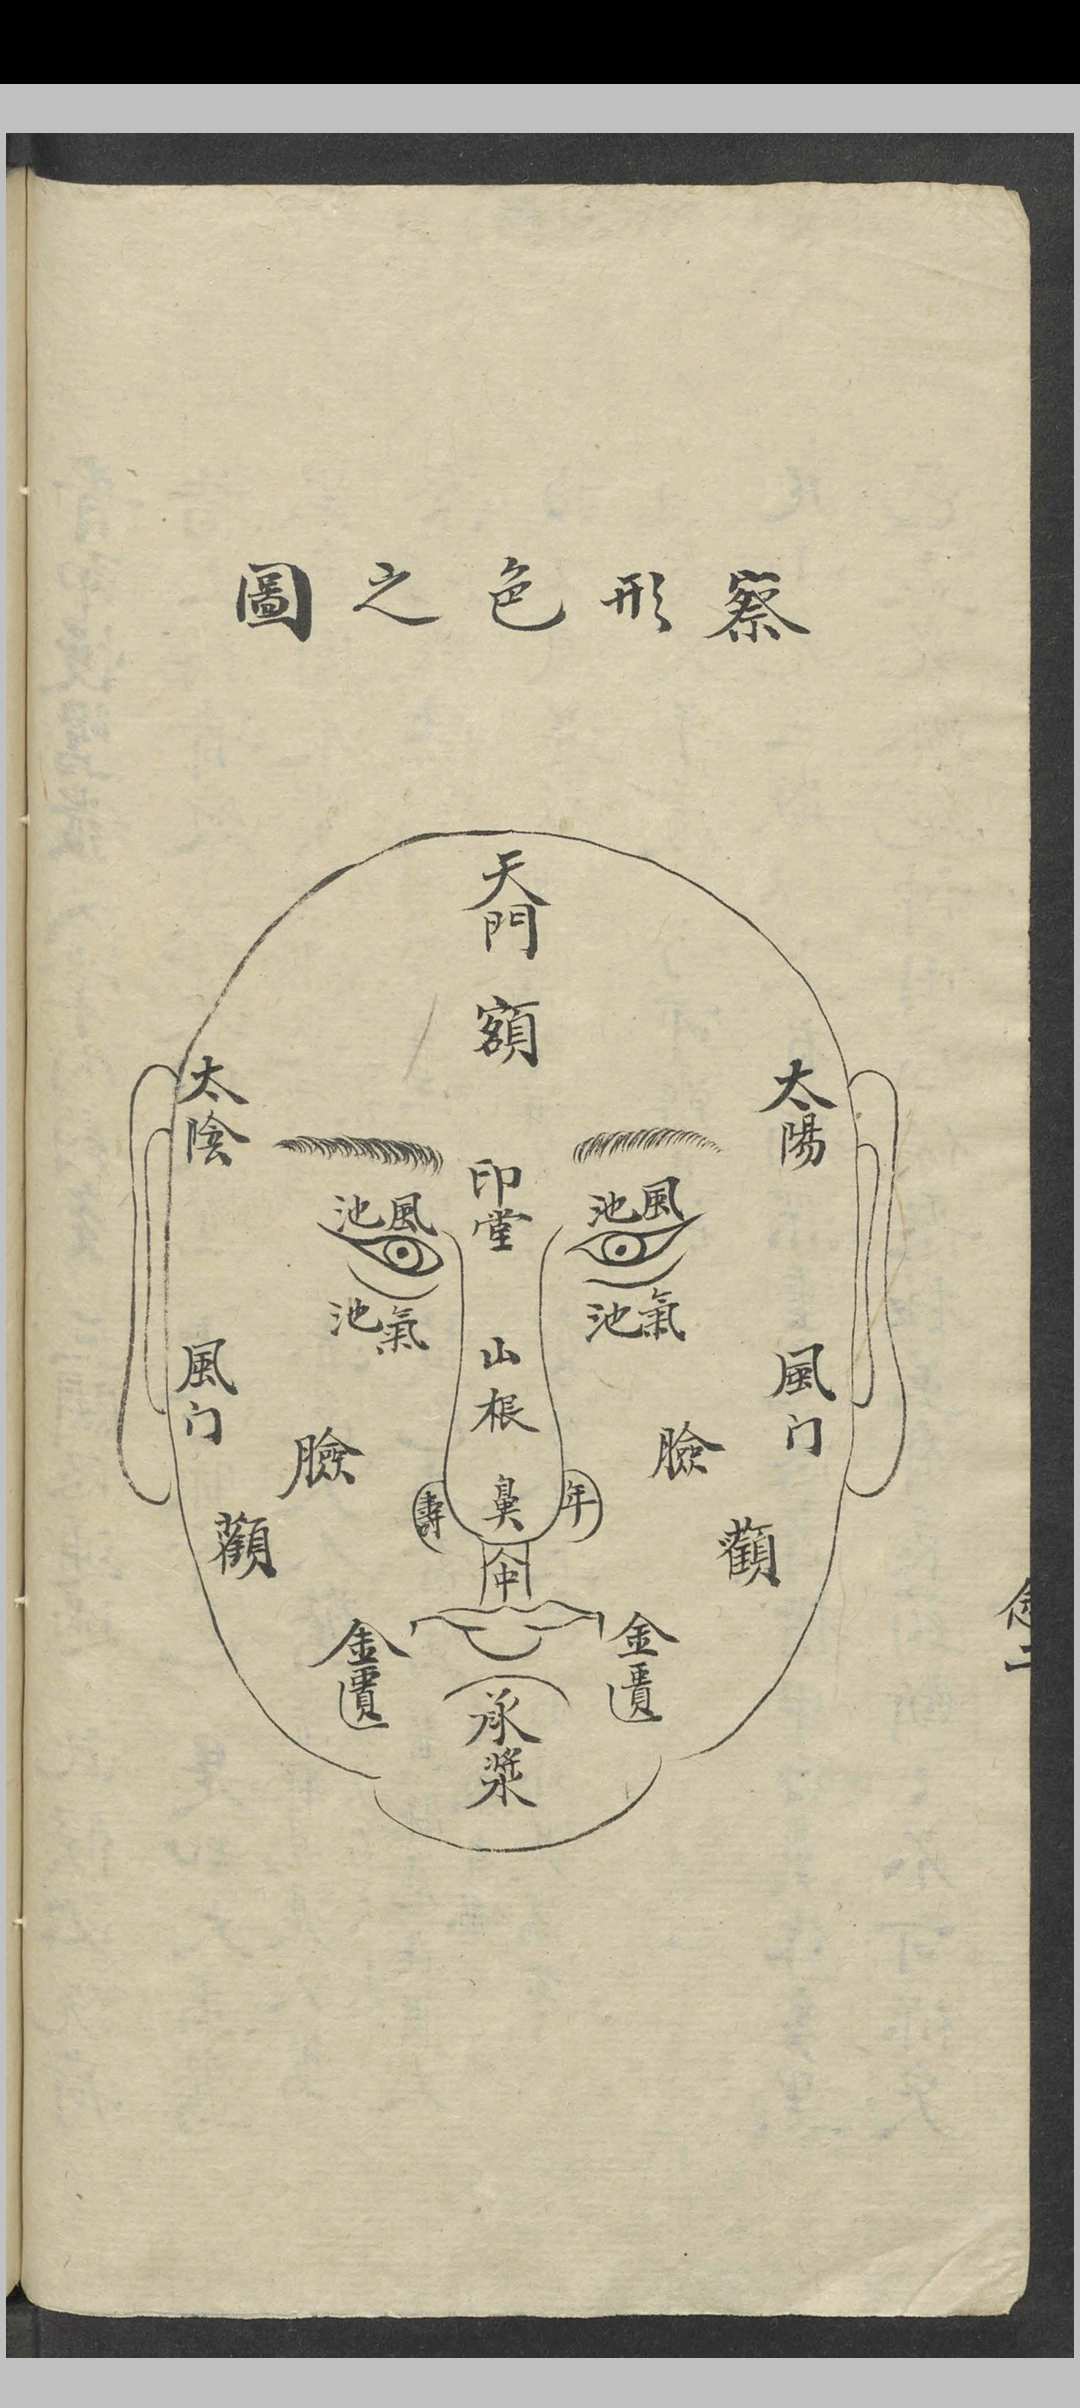 察形色之圖
天門
額
太陽
太陰
印堂
風池
風池
氣池
氣池
山根
風门
風门
臉
臉
年
鼻
壽
顴
顴
人中
金匱
金匱
承漿